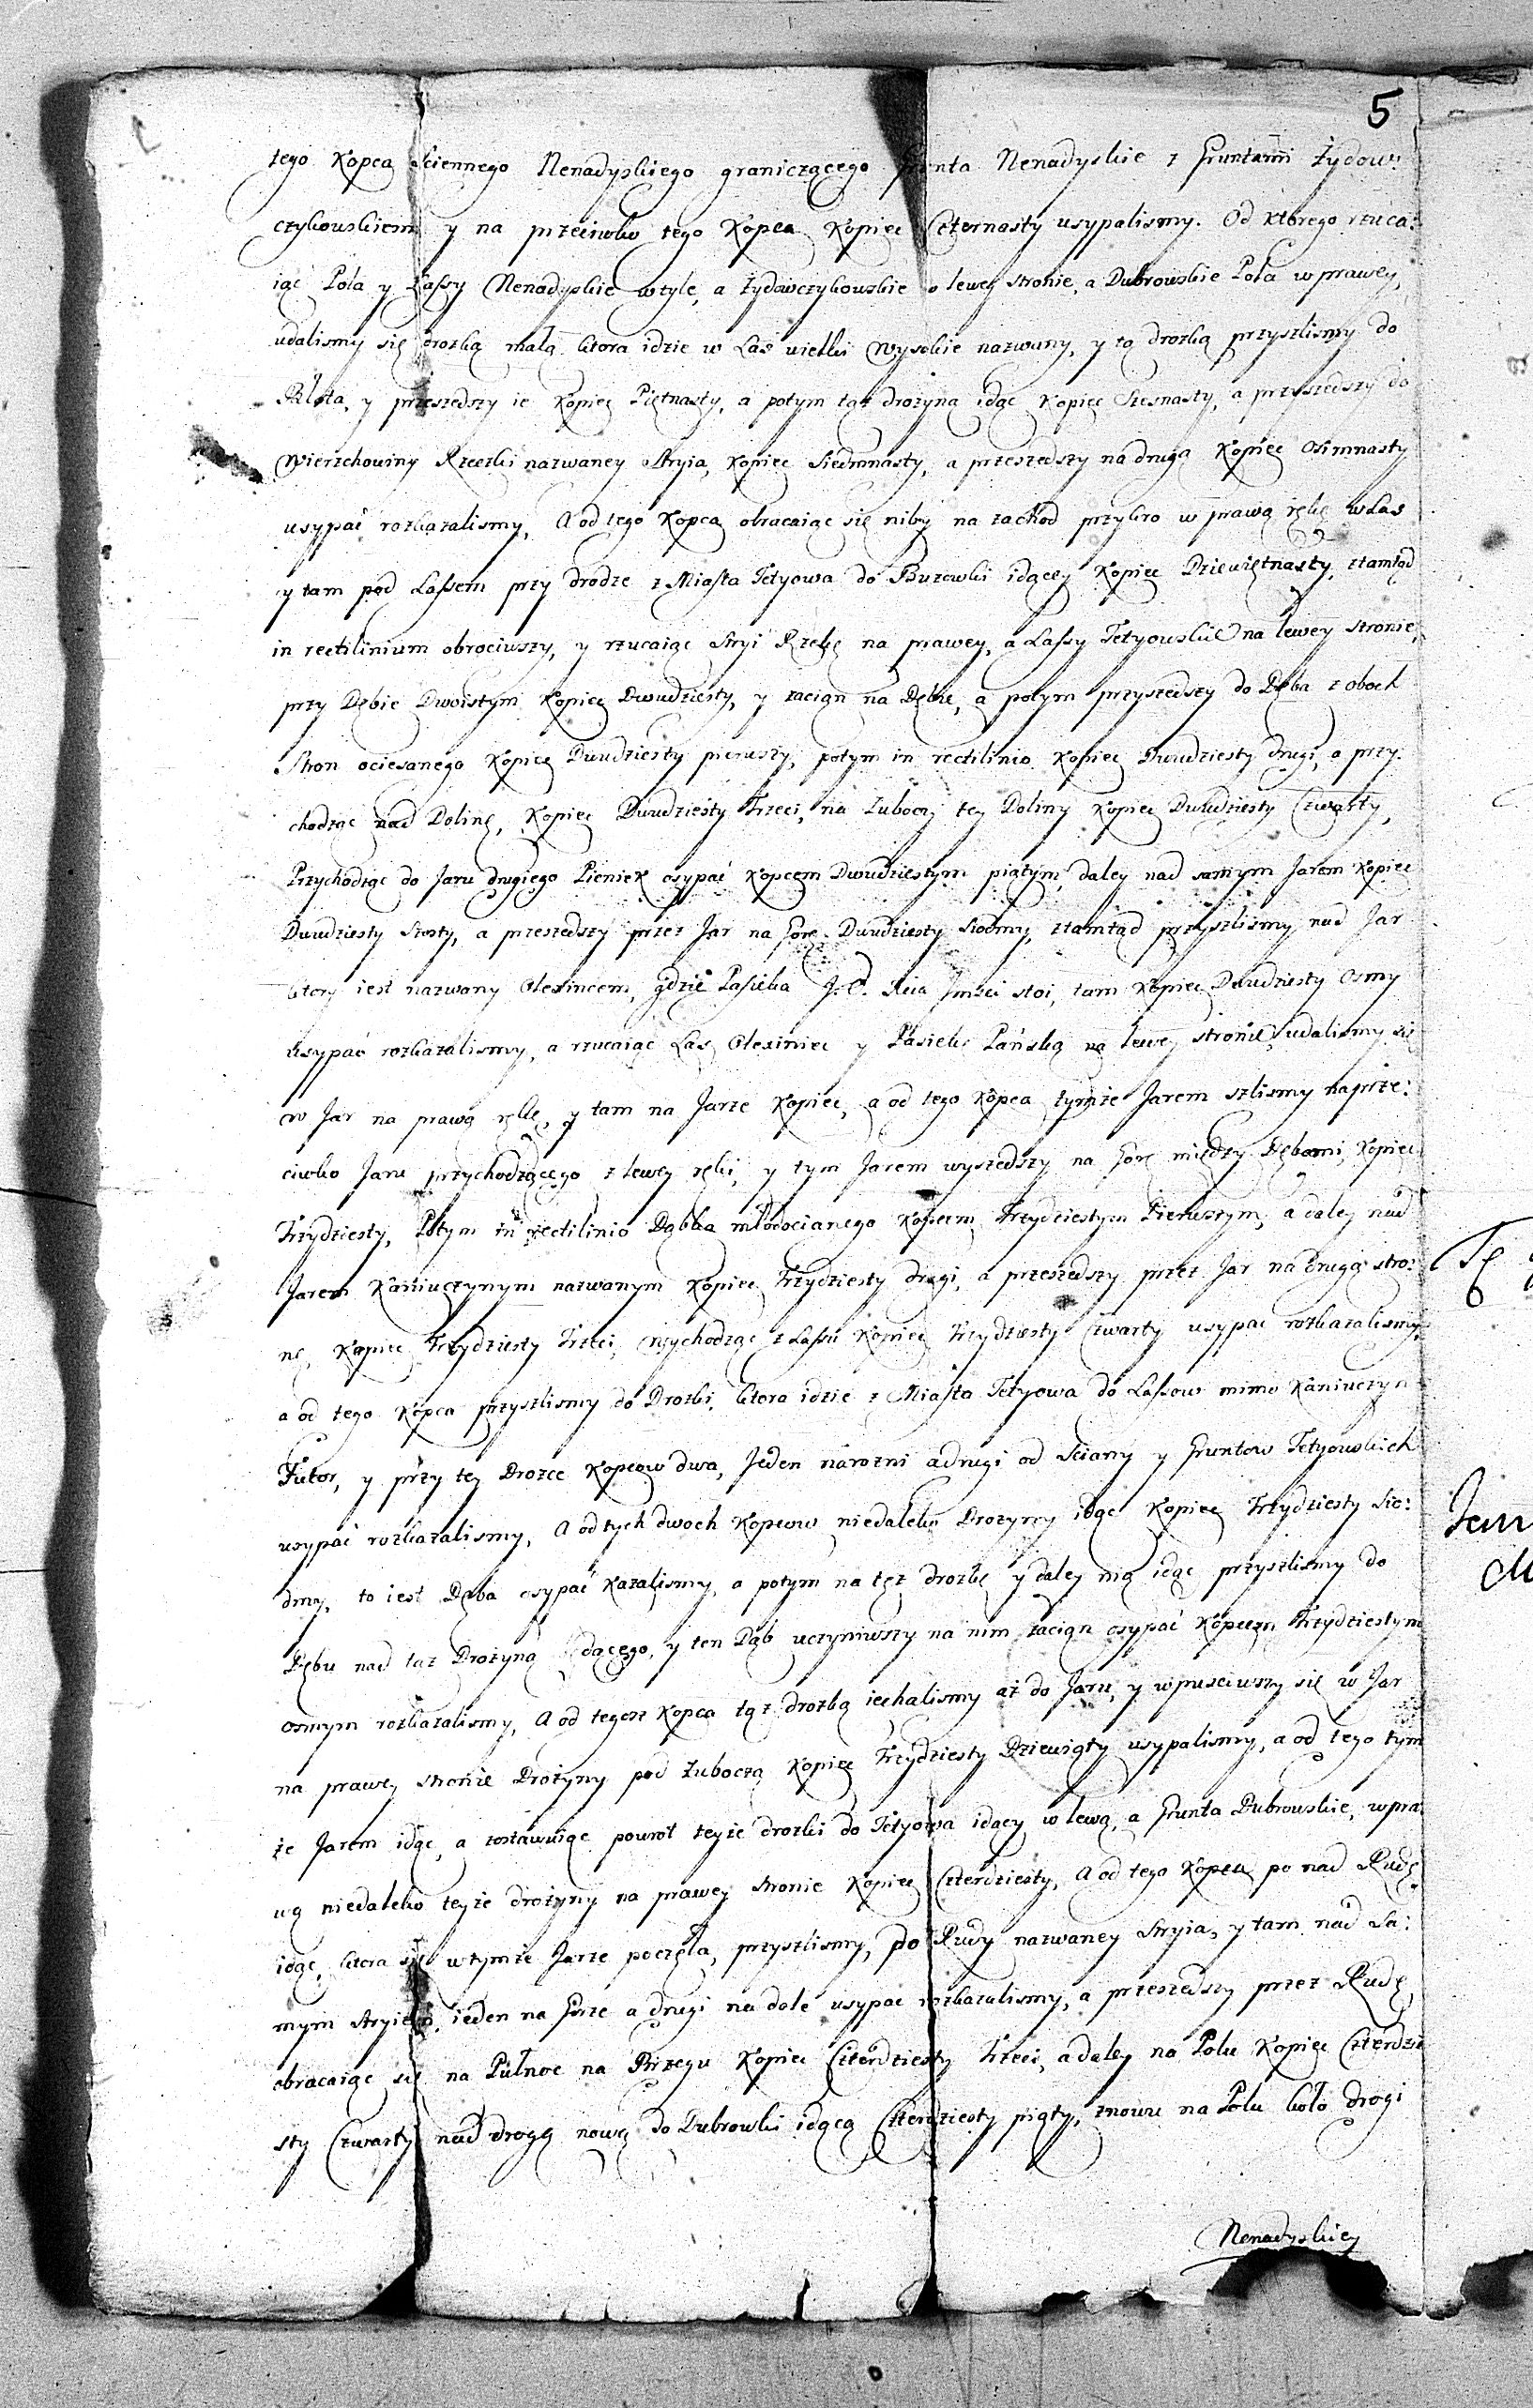 5
tego Kopca Sciennego Nenadyskiego graniczącego Grunta Nenadyskie z Gruntami Żydow:
czykowskiemi y na przeciwko tego Kopca Kopiec Czternasty usypalismy. Od ktorego rzuca:
iąc Pola y Lassy Nenadyskie wtyle, a Żydowczykowskie o lewey stronie, a Dubrowskie Pola w prawey,
udalismy się drozką małą ktora idzie w Las wielki Wysokie nazwany, y tą drozką przyszlismy do
Błota, y przeszedszy ie Kopiec Piętnasty, a potym tąż drożyną idąc Kopiec Szesnasty, a przyszedszy do
Wierzchowiny Rzeczki nazwaney Stryia, Kopiec Siedmnasty, a przeszedszy na drugą Kopiec Osimnasty
usypać rozkazalismy, A od tego Kopca obracaiąc się niby na zachod przykro w prawą rękę w Las
y tam pod Lassem przy drodze z Miasta Tetyowa do Buzowki idącey Kopiec Dziewiętnasty, ztamtąd
in rectilinium obrociwszy, y rzucaiąc Stryi Rzekę na prawey, a Lassy Tetyowskie na lewey stronie,
przy Dębie Dwoistym Kopiec Dwudziesty, y zacian na Dębie, a potym przyszedszy do Dęba z oboch
Stron ociesanego Kopiec Dwudziesty pierwszy, potym in rectilinio Kopiec Dwudziesty drugi, a przy:
chodząc nad Dolinę, Kopiec Dwudziesty Trzeci, na Łuboczy tey Doliny Kopiec Dwudziesty Czwarty,
Przychodząc do Jaru drugiego Pieniek osypać Kopcem Dwudziestym piątym, daley nad samym Jarem Kopiec
Dwudziesty Szosty, a przeszedszy przez Jar na Gorę Dwudziesty Siodmy, ztamtąd przyszlismy nad Jar
ktory iest nazwany Olexincem, gdzie Pasieka J. P. Imści stoi, tam Kopiec Dwudziesty Osmy
usypać rozkazalismy, a rzucaiąc Las Olexiniec y Pasiekę Pańską na lewey stronie, udalismy się
w Jar na prawą rękę, y tam na Jarze Kopiec, a od tego Kopca tymże Jarem szlismy naprze:
ciwko Jaru przychodzącego z lewey ręki, y tym Jarem wyszedszy na Gorę między Dębami, Kopiec
Trzydziesty, Potym in rectilinio Dąbka młodocianego Kopcem Trzydziestym Pierwszym, a daley nad
Jarem Kaniuczynym nazwanym Kopiec Trzydziesty drugi, a przeszedszy przez Jar na drugą stro:
nę, Kopiec Trzydziesty Trzeci, wychodząc z Lassu Kopiec Trzydziesty Czwarty usypać rozkazalismy,
a od tego Kopca przyszlismy do Drozki, ktora idzie z Miasta Tetyowa do Lassow mimo Kaniuczyn
Futor, y przy tey Drozce Kopcow dwa, Jeden narozni a drugi od Sciany y Gruntow Tetyowskich
usypać rozkazalismy, A od tych dwoch Kopcow niedaleko Drozyny idąc Kopiec Trzydziesty Sio:
dmy, to iest Dęba osypać kazalismy, a potym na tęż drozkę y daley nią idąc przyszlismy do
Dębu nad taż Drożyną będącego, y ten Dąb uczyniwszy na nim zacian osypać Kopcem Trzydziestym
osmym rozkazalismy, A od tegosz Kopca tąż drozką iechalismy aż do Jaru, y wpusciwszy się w Jar
na prawey stronie Drożyny pod Łuboczą Kopiec Trzydziesty Dziewiąty usypalismy, a od tego tym
że Jarem idąc, a zostawuiąc powrot teyże drozki do Tetyowa idącey w lewą, a Grunta Dubrowskie, w pra
wą niedaleko teyże drożyny na prawey stronie Kopiec Czterdziesty, A od tego Kopca po nad Rudę
idąc, ktora się w tymże Jarze poczęła, przyszlismy, do Rudy nazwaney Stryia, y tam nad Sa:
mym Stryiem, ieden na Gorze a drugi na dole usypać rozkazalismy, a przeszedszy przez Rudę,
obracaiąc się na Pułnoc na Brzegu Kopiec Czterdziesty Trzeci, a daley na Polu Kopiec Czterdzie
sty Czwarty nad drogą nową do Dubrowki idącą Czterdziesty piąty, znowu na Polu koło drogi
Nenadyskiey